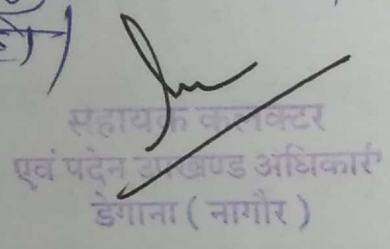 सहायक कलक्टर
एवं पदेन उपखण्ड अधिकारी
डेगाना ( नागौर )